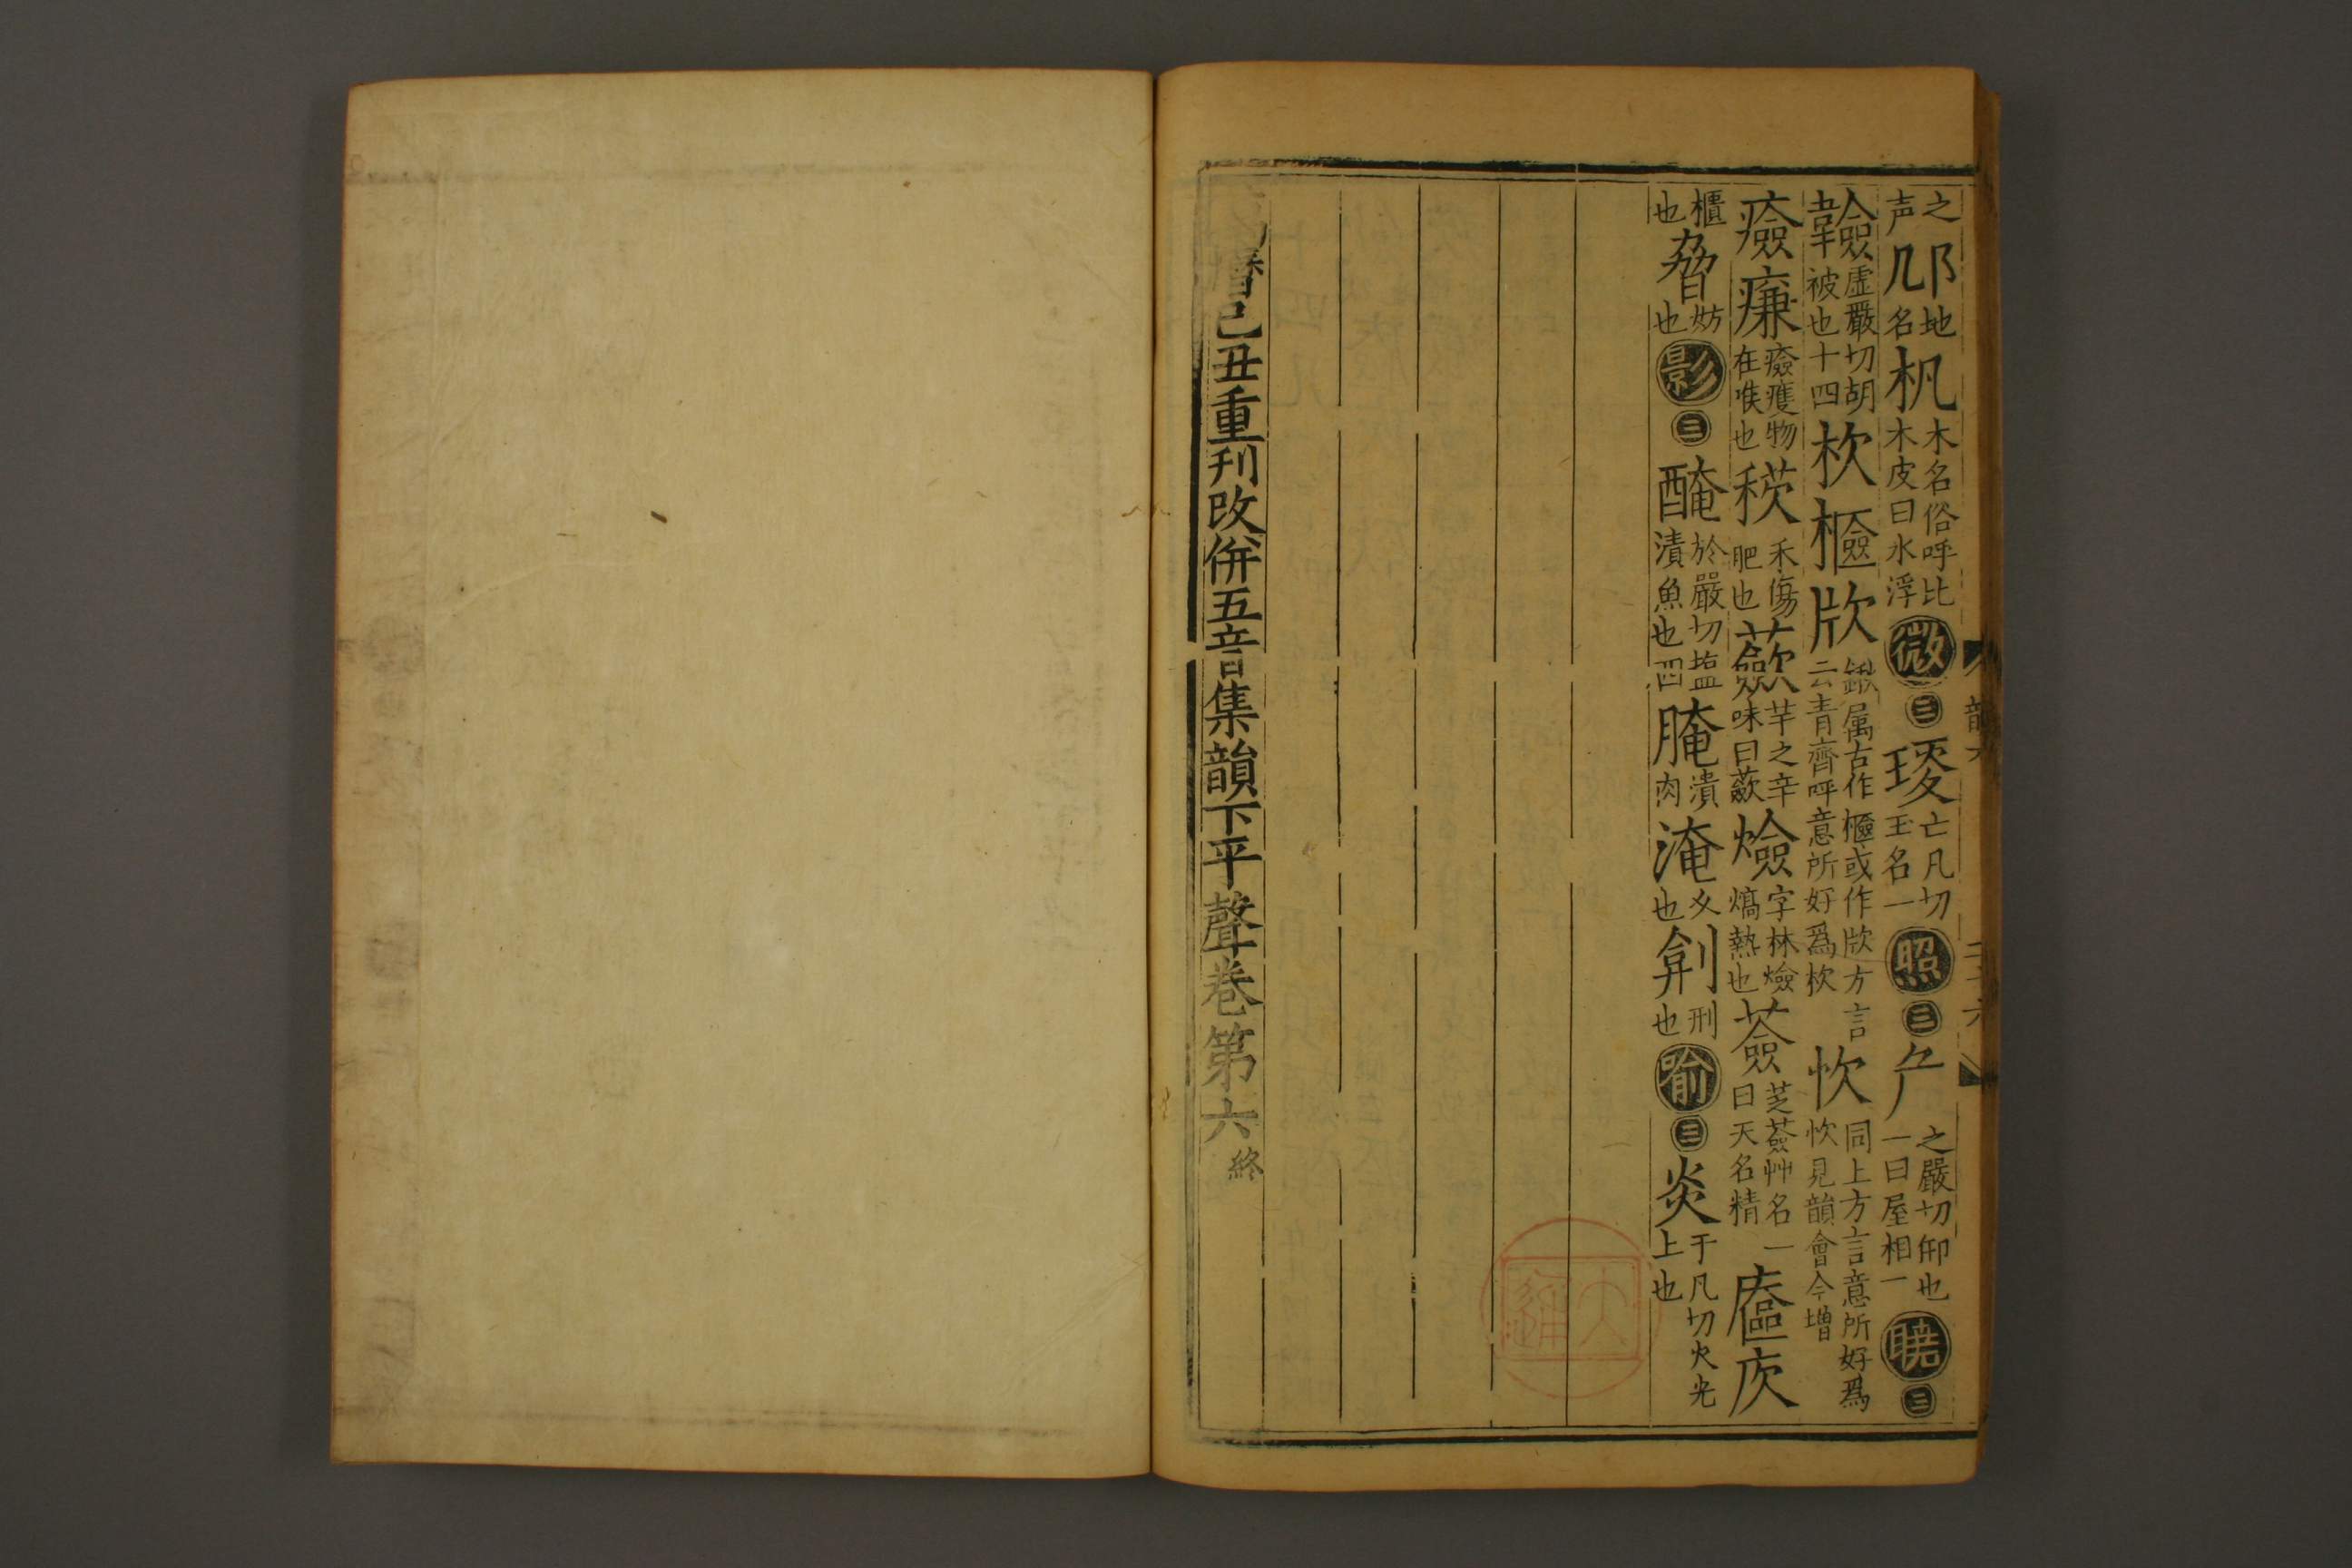 之声 邔 地名 机 木名俗呼比木皮曰水浮 微 三 㻎 亡凡切玉名一 照 三 厃 之嚴切仰也一曰屋相一 曉 三
韽 虛嚴切胡被也十四 杴 㰹 㸝 鍬属古作㰹或作㸝方言云青齊呼意所好為杴 忺 同上方言意所好為忺見韻會今增
㾾 㾾 癊㾾物在喉也 䅙 禾傷肥也 蘞 芋之辛味曰蘞 㷿 字林㷿熇熱也 薟 芝薟艸名一曰天名精
櫃也 脅 妨也 影 三 醃 於嚴切塩漬魚也四 腌 漬肉 淹 久也 刑也 喻 三 炎 于凡切火光上也
曆己丑重刊改併五音集韻下平聲卷第六 終